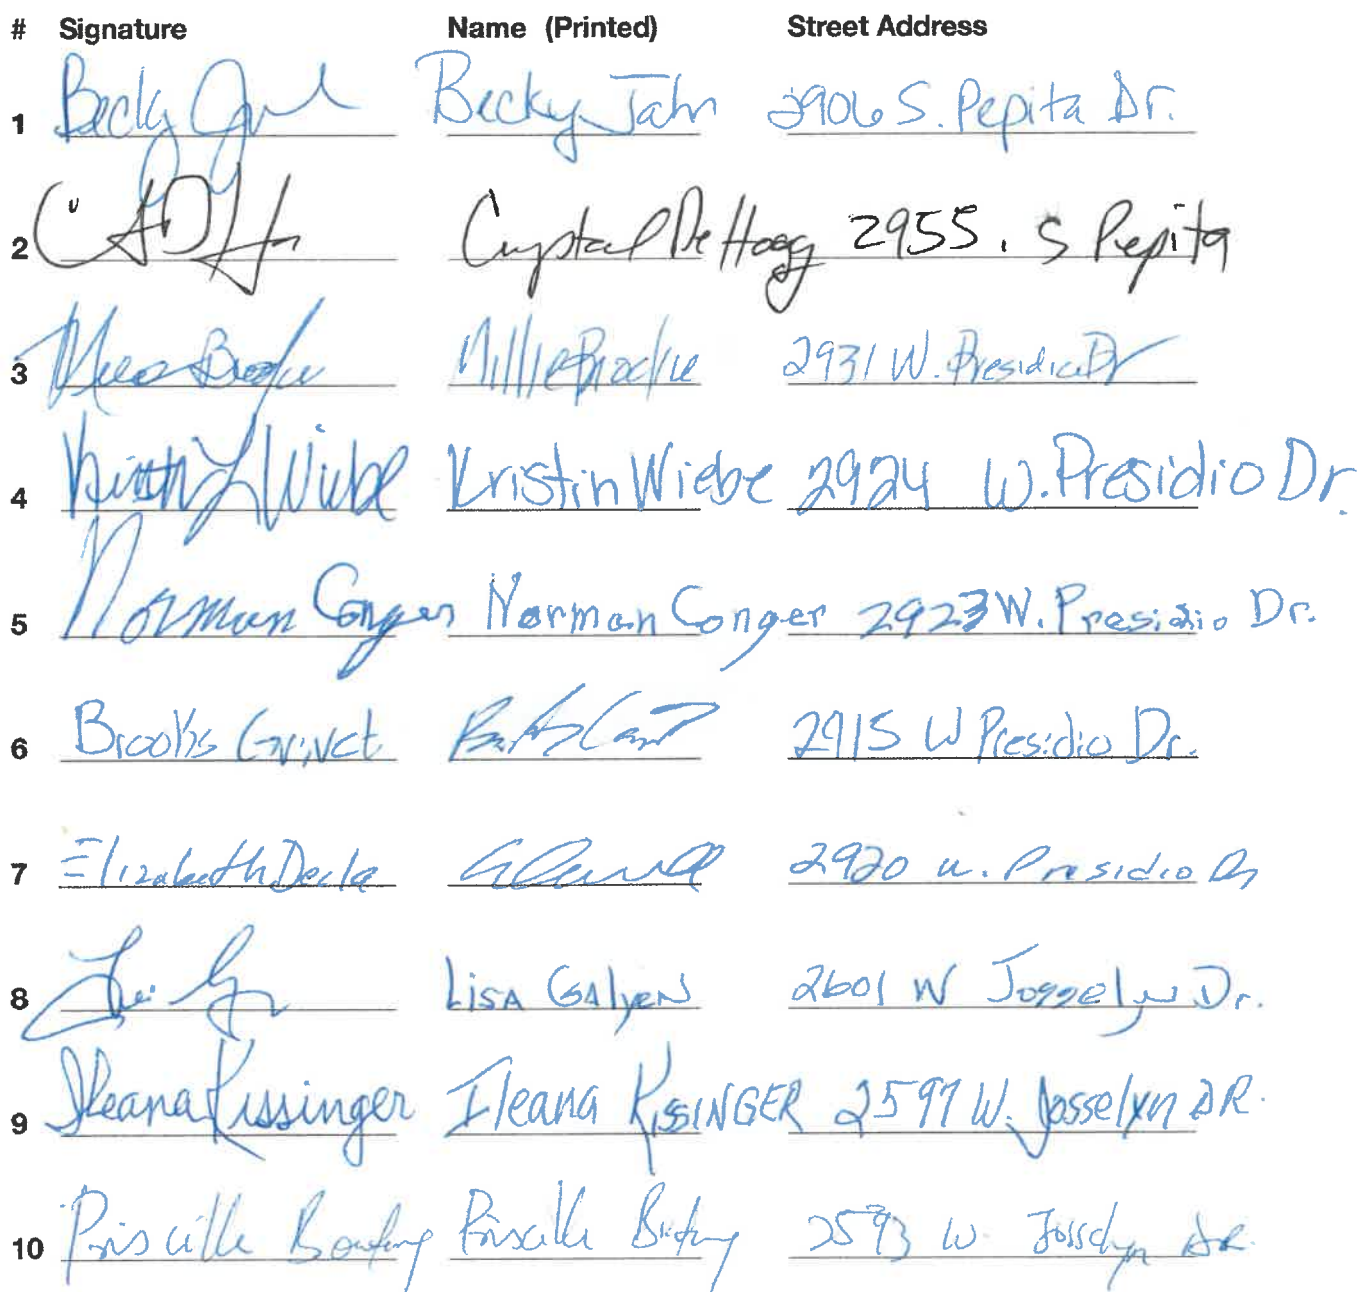 # Signature Name (Printed) Street Address
1 Becky Becky Jahn 2906 S. Pepita Dr.
2 Crystal DeHoag 2955 . S Pepita
3 Millie Brodie 2931 W. Presidio Dr
4 Kristin L Wiebe Kristin Wiebe 2924 W. Presidio Dr.
5 Norman Conger Norman Conger 2923 W. Presidio Dr.
6 Brooks 2915 W Presidio Dr.
7 Elizabeth 2920 W. Presidio Dr
8 Lisa Galyen 2601 W Josselyn Dr.
9 Ileana Kissinger Ileana KissINGER 2597 W. Josselyn DR.
10 Priscilla Priscilla 2593 W. Josselyn DR.